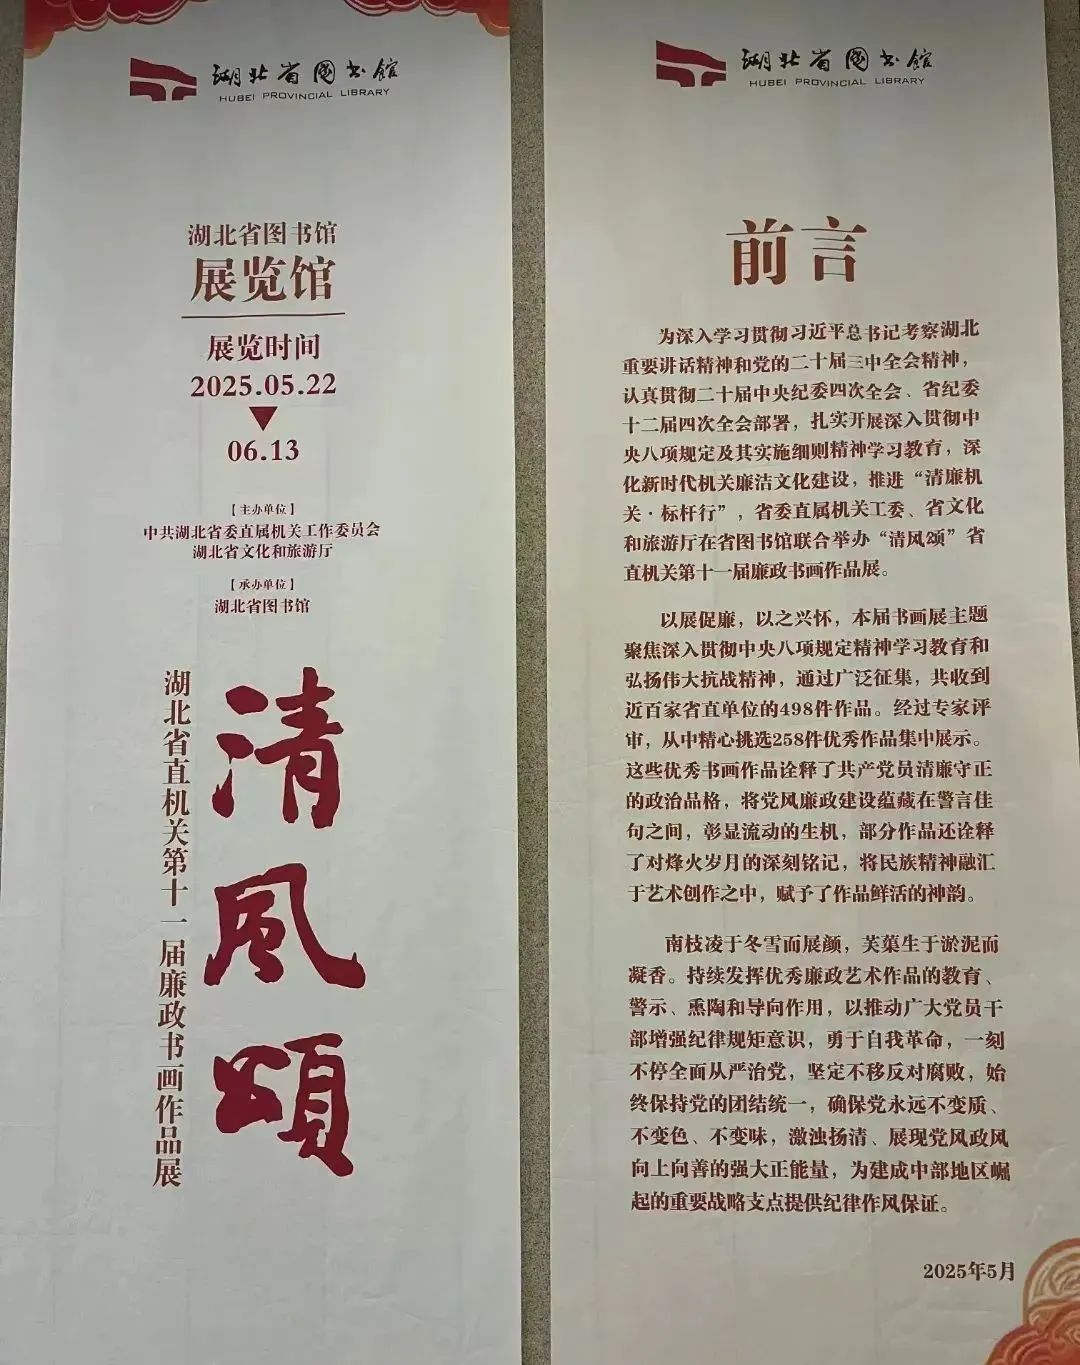 湖北省图书馆
HUBEI PROVINCIAL LIBRARY
湖北省图书馆
展览馆
展览时间
2025.05.22
06.13
【主办单位】
中共湖北省委直属机关工作委员会
湖北省文化和旅游厅
【承办单位】
湖北省图书馆
清風頌
湖北省直机关第十一届廉政书画作品展
湖北省图书馆
HUBEI PROVINCIAL LIBRARY
前言
为深入学习贯彻习近平总书记考察湖北
重要讲话精神和党的二十届三中全会精神，
认真贯彻二十届中央纪委四次全会、省纪委
十二届四次全会部署，扎实开展深入贯彻中
央八项规定及其实施细则精神学习教育，深
化新时代机关廉洁文化建设，推进“清廉机
关·标杆行”，省委直属机关工委、省文化
和旅游厅在省图书馆联合举办“清风颂”省
直机关第十一届廉政书画作品展。
以展促廉，以之兴怀，本届书画展主题
聚焦深入贯彻中央八项规定精神学习教育和
弘扬伟大抗战精神，通过广泛征集，共收到
近百家省直单位的498件作品。经过专家评
审，从中精心挑选258件优秀作品集中展示。
这些优秀书画作品诠释了共产党员清廉守正
的政治品格，将党风廉政建设蕴藏在警言佳
句之间，彰显流动的生机，部分作品还诠释
了对烽火岁月的深刻铭记，将民族精神融汇
于艺术创作之中，赋予了作品鲜活的神韵。
南枝凌于冬雪而展颜，芙蕖生于淤泥而
凝香。持续发挥优秀廉政艺术作品的教育、
警示、熏陶和导向作用，以推动广大党员干
部增强纪律规矩意识，勇于自我革命，一刻
不停全面从严治党，坚定不移反对腐败，始
终保持党的团结统一，确保党永远不变质、
不变色、不变味，激浊扬清、展现党风政风
向上向善的强大正能量，为建成中部地区崛
起的重要战略支点提供纪律作风保证。
2025年5月